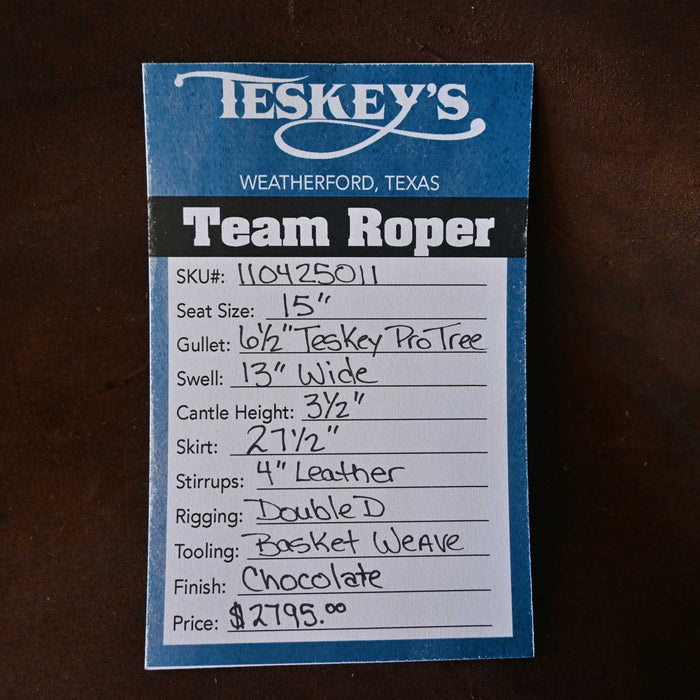 TESKEY'S
WEATHERFORD, TEXAS
Team Roper
SKU#: 110425011
Seat Size: 15"
Gullet: 6½" Teskey Pro Tree
Swell: 13" Wide
Cantle Height: 3½"
Skirt: 27½"
Stirrups: 4" Leather
Rigging: Double D
Tooling: Basket Weave
Finish: Chocolate
Price: $2795.00